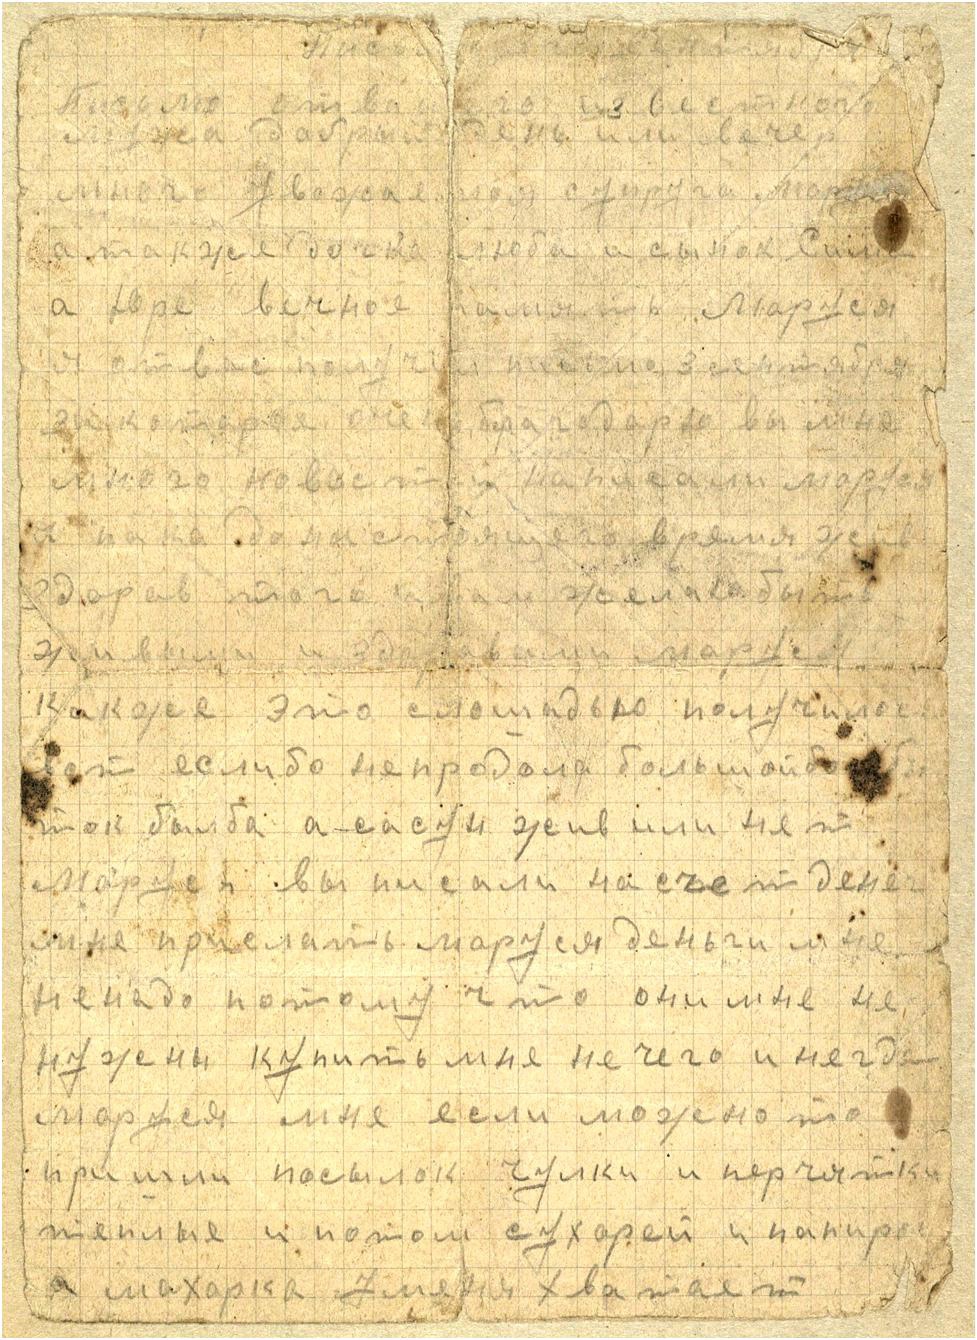 Письмо
Письмо от вашего известного
мужа добрый день или вечер
много уважаемая супруга Маруся
а также дочка люба а сынок
а Юре вечное память Маруся
я от вас получил письмо 3 сентября
за которое очень благодарю вы мне
много новостей написали маруся
я пока до настоящего время жив
здоров того и вам желаю быть
живыми и здоровыми маруся
как же это слошадью получилос
вот еслибо непродола большой бы
ток былба а сасун жив или нет
Маруся вы писали насчет денег
мне прислать маруся деньги мне
ненадо потому что они мне не
нужны купить мне нечего и негде
маруся мне если можно то
пришли посылок чулки и перчятки
теплые и потом сухарей и папирос
а махорка уменя хватает